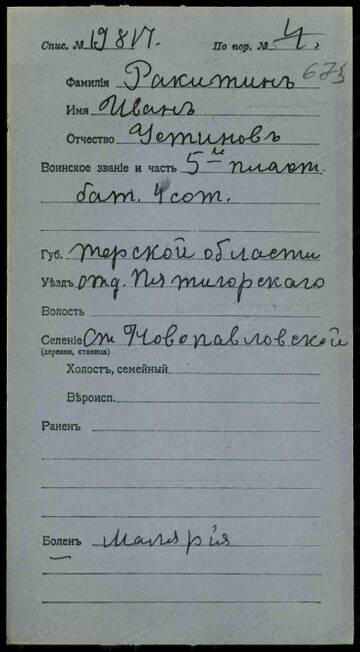 Спис. № 1981/7. По пор. № 4,
675
Фамилія Ракитинъ
Имя Иванъ
Отчество Устиновъ
Воинское званіе и часть 5 м пласт.
бат. 4 сот.
Губ. Терской области
Уѣздъ отд. Пятигорскаго
Волость
Селеніе Ст Новопавловской
(деревня, станица)
Холостъ, семейный
Вѣроисп.
Раненъ
Боленъ Малярія